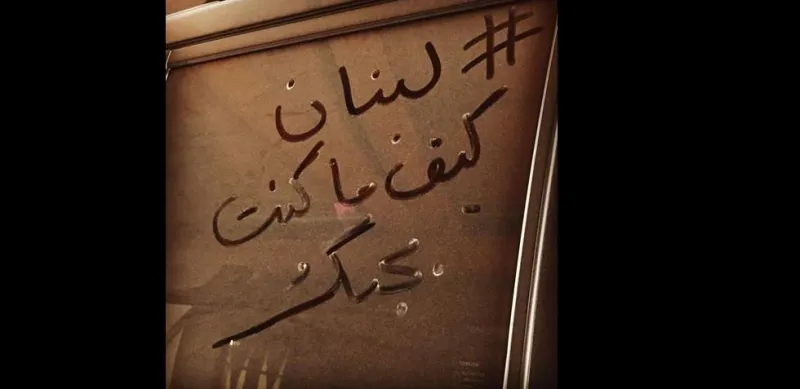 #لبنان
كيف ما كنت
بحبك